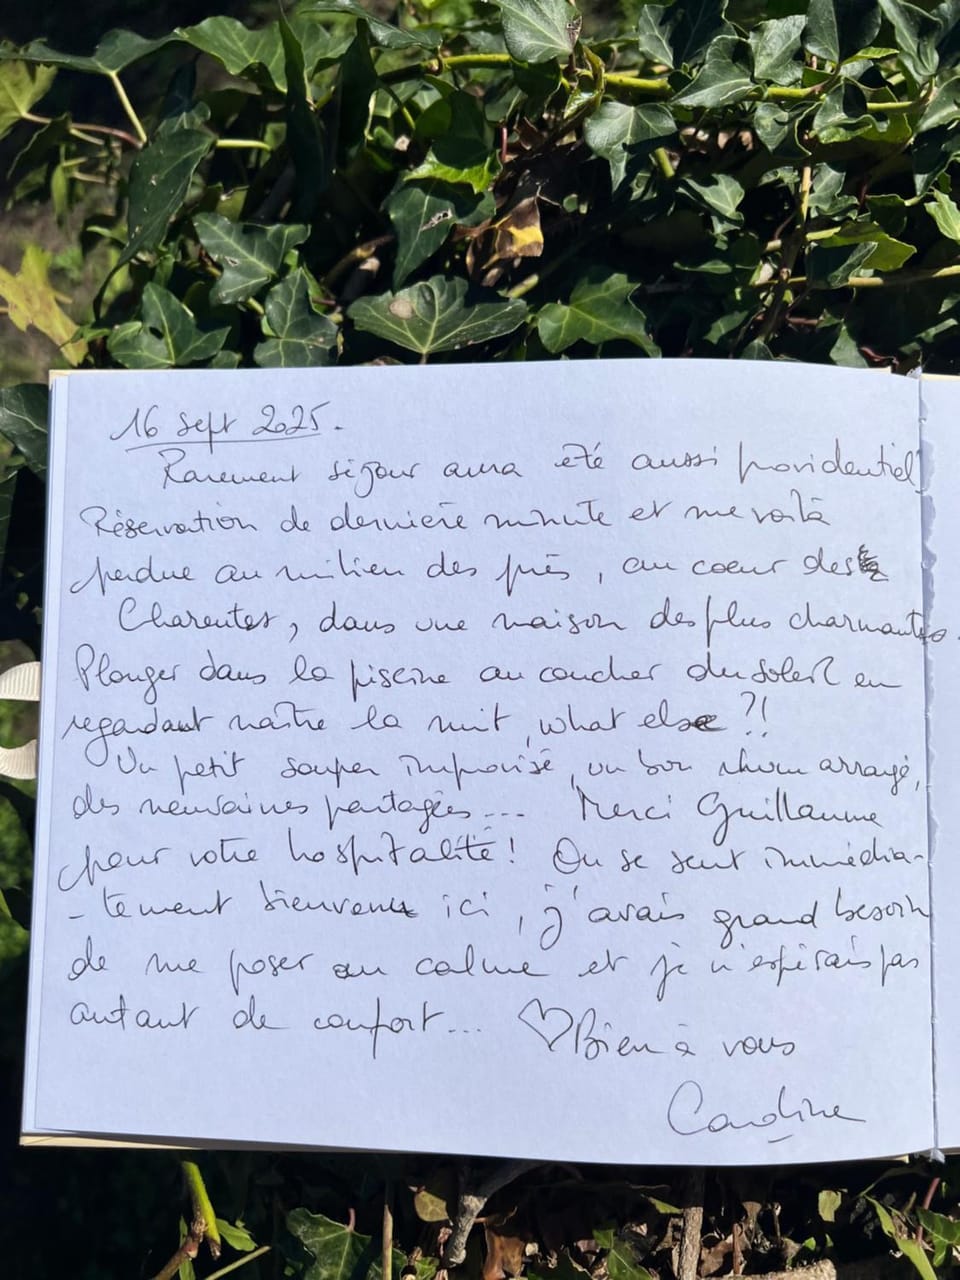 16 sept 2025.
Rarement séjour aura été aussi providentiel
Réservation de dernière minute et me voilà
perdue au milieu des prés, au coeur des
Charentes, dans une maison des plus charmantes.
Plonger dans la piscine au coucher du soleil en
regardant naître la nuit, what else ?!
Un petit souper improvisé, un bon rhum arrangé,
des neuvaines partagées... Merci Guillaume
pour votre hospitalité ! On se sent immédia-
-tement bienvenu ici, j'avais grand besoin
de me poser au calme et je n'espérais pas
autant de confort... ♡ Bien à vous
Caroline